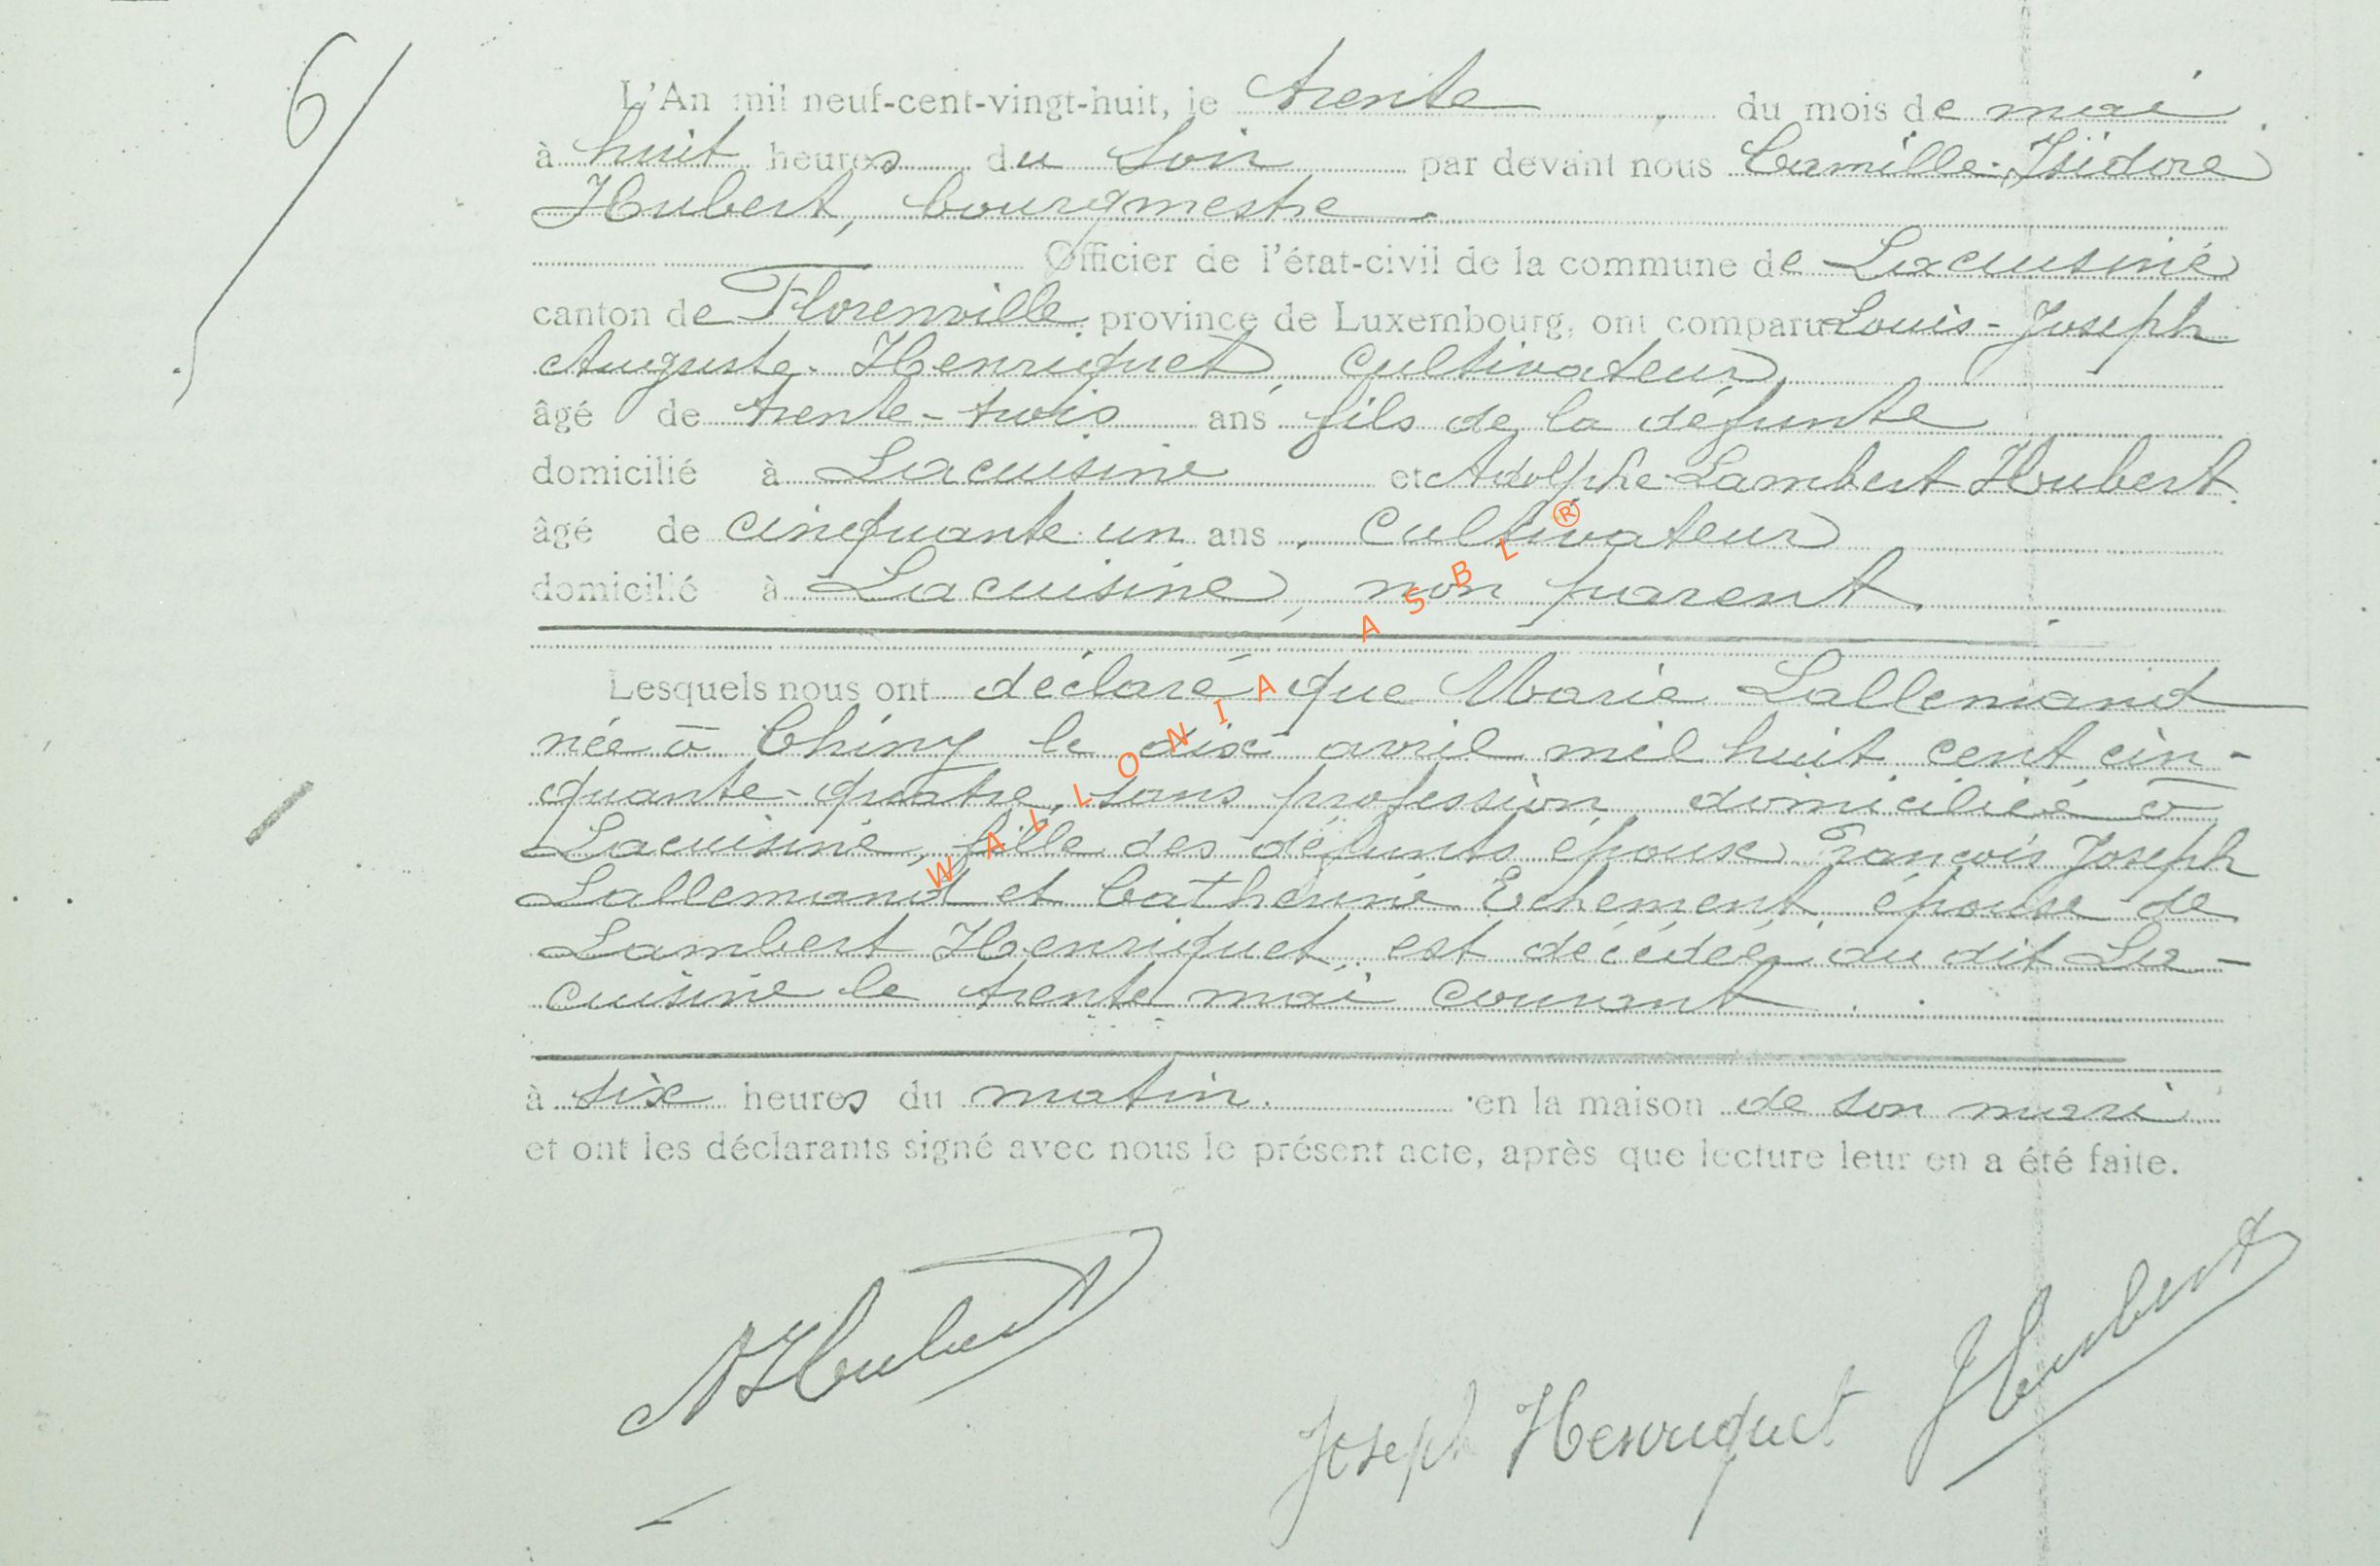 6/
L'An mil neuf-cent-vingt-huit, le trente du mois de mai
à huit heures du soir par devant nous Camille-Isidore
Hubert, bourgmestre.
Officier de l'état-civil de la commune de Lacuisine
canton de Florenville province de Luxembourg, ont comparu Louis-Joseph
Auguste Henriquet, cultivateur
âgé de trente-trois ans fils de la défunte
domicilié à Lacuisine et Adolphe Lambert Hubert
âgé de cinquante un ans, cultivateur
domicilié à Lacuisine, non parent.
Lesquels nous ont déclaré que Marie Lallemand
née à Chiny le dix avril mil huit cent cin-
quante-quatre, sans profession, domiciliée à
Lacuisine, fille des défunts époux François Joseph
Lallemand et Catherine Echement, épouse de
Lambert Henriquet, est décédée au dit La-
cuisine le trente mai courant.
à six heures du matin. en la maison de son mari
et ont les déclarants signé avec nous le présent acte, après que lecture leur en a été faite.
A Hubert
Joseph Henriquet
Hubert
WALLONIA ASBL ®